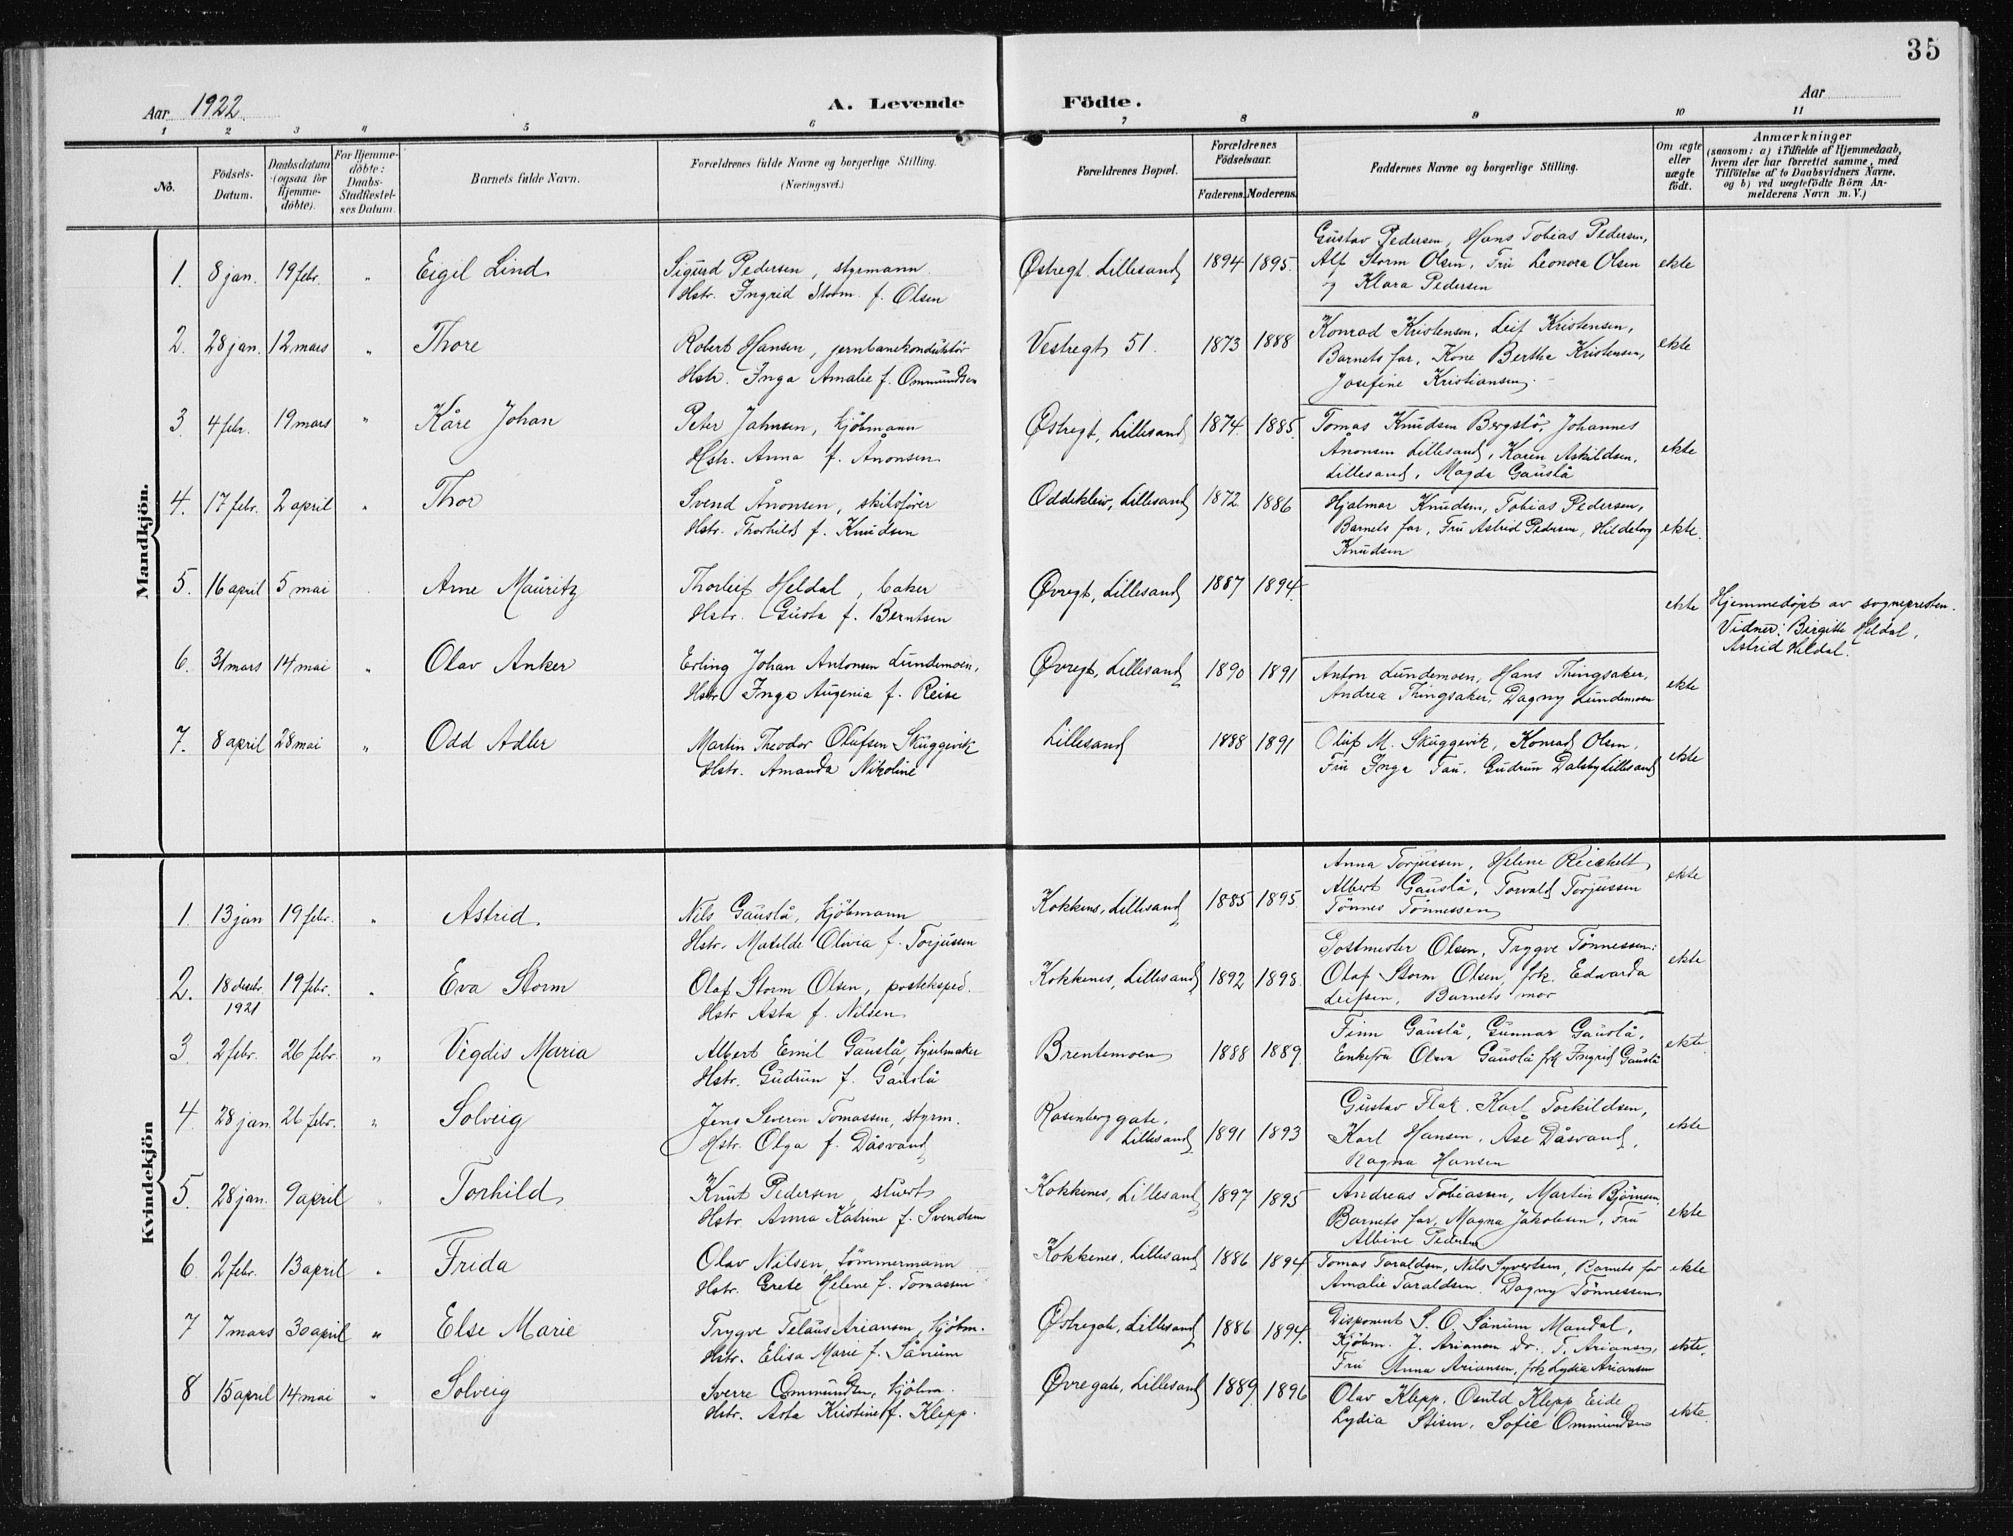 35
Aar 1922. A. Levende Födte. Aar
1 2 3 4 5 6 7 8 9 10 11
No. Födsels-Datum. Daabsdatum (ogsaa för Hjemme-döbte). For Hjemme-döbte: Daabs-Stadfæstel-ses Datum. Barnets fulde Navn. Forældrenes fulde Navne og borgerlige Stilling. (Næringsvei.) Forældrenes Bopæl. Forældrenes Födselsaar. Faderens. Moderens. Faddernes Navne og borgerlige Stilling. Om ægte eller uægte födt. Anmærkninger (saasom: a) i Tilfælde af Hjemmedaab, hvem der har forrettet samme, med Tilföielse af to Daabsvidners Navne. og b) ved uægtefödte Börn An-melderens Navn m. V.)
Mandkjön.
1. 8 jan. 19 febr. " Eigil Lind Sigurd Pedersen, styrmann. Østregt. Lillesand 1894 1895. Gustav Pedersen, Hans Tobias Pedersen, ekte
Hstr. Ingrid Storm f. Olsen Alf Storm Olsen, Fru Leonora Olsen
og Klara Pedersen
2. 28 jan. 12 mars " Thore Robert Hansen, jernbanekonduktör Vestregt 51. 1873 1888 Konrad Kristensen, Leif Kristensen, ekte
Hstr. Inga Amalie f. Ommundsen Barnets far, Kone Bertha Kristensen,
Josefine Kristiansen.
3. 4 febr. 19 mars " Kåre Johan Peter Jahnsen, kjöbmann Østregt, Lillesand 1874. 1885. Tomas Knudsen Bergstö, Johannes ekte
Hstr. Anna f. Ånonsen Ånonsen Lillesand, Karen Askildsen,
Lillesand, Magda Gauslå
4. 17 febr. 2 april " Thor Svend Ånonsen, skibsfører Oddekleiv, Lillesand 1872. 1886 Hjalmar Knudsen, Tobias Pedersen, ekte.
Hstr. Thorhild f. Knudsen Barnets far, Fru Astrid Pedersen, Hildeborg
Knudsen
5. 16 april 5 mai Arne Mauritz Thorleif Heldal, baker Øvregt, Lillesand 1887 1894. ekte Hjemmedøpt av sognepresten.
Hstr. Gusta f. Berntsen Vidner: Birgitte Heldal,
Astrid Heldal.
6. 31 mars 14 mai " Olav Anker Erling Johan Antonsen Lundemoen, Øvregt, Lillesand 1890 1891 Anton Lundemoen, Hans Thingsaker, ekte
Hstr Inga Augenia f. Reise Andrea Thingsaker, Dagny Lundemoen
7. 8 april 28 mai " Odd Adler Martin Theodor Olufsen Skuggevik Lillesand 1888 1891 Oluf M. Skuggevik, Konrad Olsen, ekte
Hstr. Amanda Nikoline Fru Inga Tau. Gudrun Dalsby Lillesand
Kvindekjön
1. 13 jan 19 febr. " Astrid. Nils Gauslå, kjöbmann Kokkens, Lillesand 1885 1895. Anna Torjussen, Helene Reichelt, ekte
Hstr. Matilde Olivia f. Torjussen Albert Gauslå, Torvald Torjussen
Tönnes Tönnessen
2. 18 desbr. 1921 19 febr. " Eva Storm Olaf Storm Olsen, posteksped. Kokkenes, Lillesand 1892 1898. Postmester Olsen, Trygve Tönnessen: ekte
Hstr Asta f. Nilsen Olaf Storm Olsen, frk. Edwarda
Leifsen, Barnets mor
3. 2 febr. 26 febr. " Vigdis Maria Albert Emil Gauslå, hjulmaker Brentemoen 1888 1889. Finn Gauslå, Gunnar Gauslå, ekte.
Hstr. Gudrun f. Gauslå Enkefru Olava Gauslå frk Ingrid Gauslå
4. 28 jan. 26 febr. " Solveig Jens Severin Tomassen, styrm. Rosenberggate, Lillesand 1891 1893 Gustav Flak, Karl Torkildsen, ekte
Hstr. Olga f. Dåsvand Karl Hansen, Åse Dåsvand,
Ragna Hansen
5. 28 jan. 9 april " Torhild Knut Pedersen, stuert Kokkenes, Lillesand 1897 1895 Andreas Tobiassen, Martin Björnsen ekte
Hstr. Anna Katrine f. Svendsen Barnets far, Magna Jakobsen, Fru
Albine Pedersen
6. 2 febr. 13 april " Frida Olav Nilsen, tömmermann Kokkenes, Lillesand 1886 1894 Tomas Taraldsen, Nils Syvertsen, Barnets far ekte
Hstr. Grete Helene f. Tomassen Amalie Taraldsen. Dagny Tönnessen
7 7 mars 30 april " Else Marie Trygve Telaus Ariansen, kjöbm. Østregate, Lillesand 1886 1894. Disponent S. O. Sånum Mandal, ekte.
Hstr. Elisa Marie f. Sånum Kjöbm. J. Ariansen dr. T. Ariansen,
Fru Anna Ariansen, frk Lydia Ariansen
8 15 april 14 mai " Solveig Sverre Ommundsen, kjöbm. Øvregate, Lillesand 1889. 1896 Olav Klepp, Osuld Klepp Eide ekte.
Hstr. Asta Kristine f. Klepp. Lydia Stisen, Sofie Ommundsen